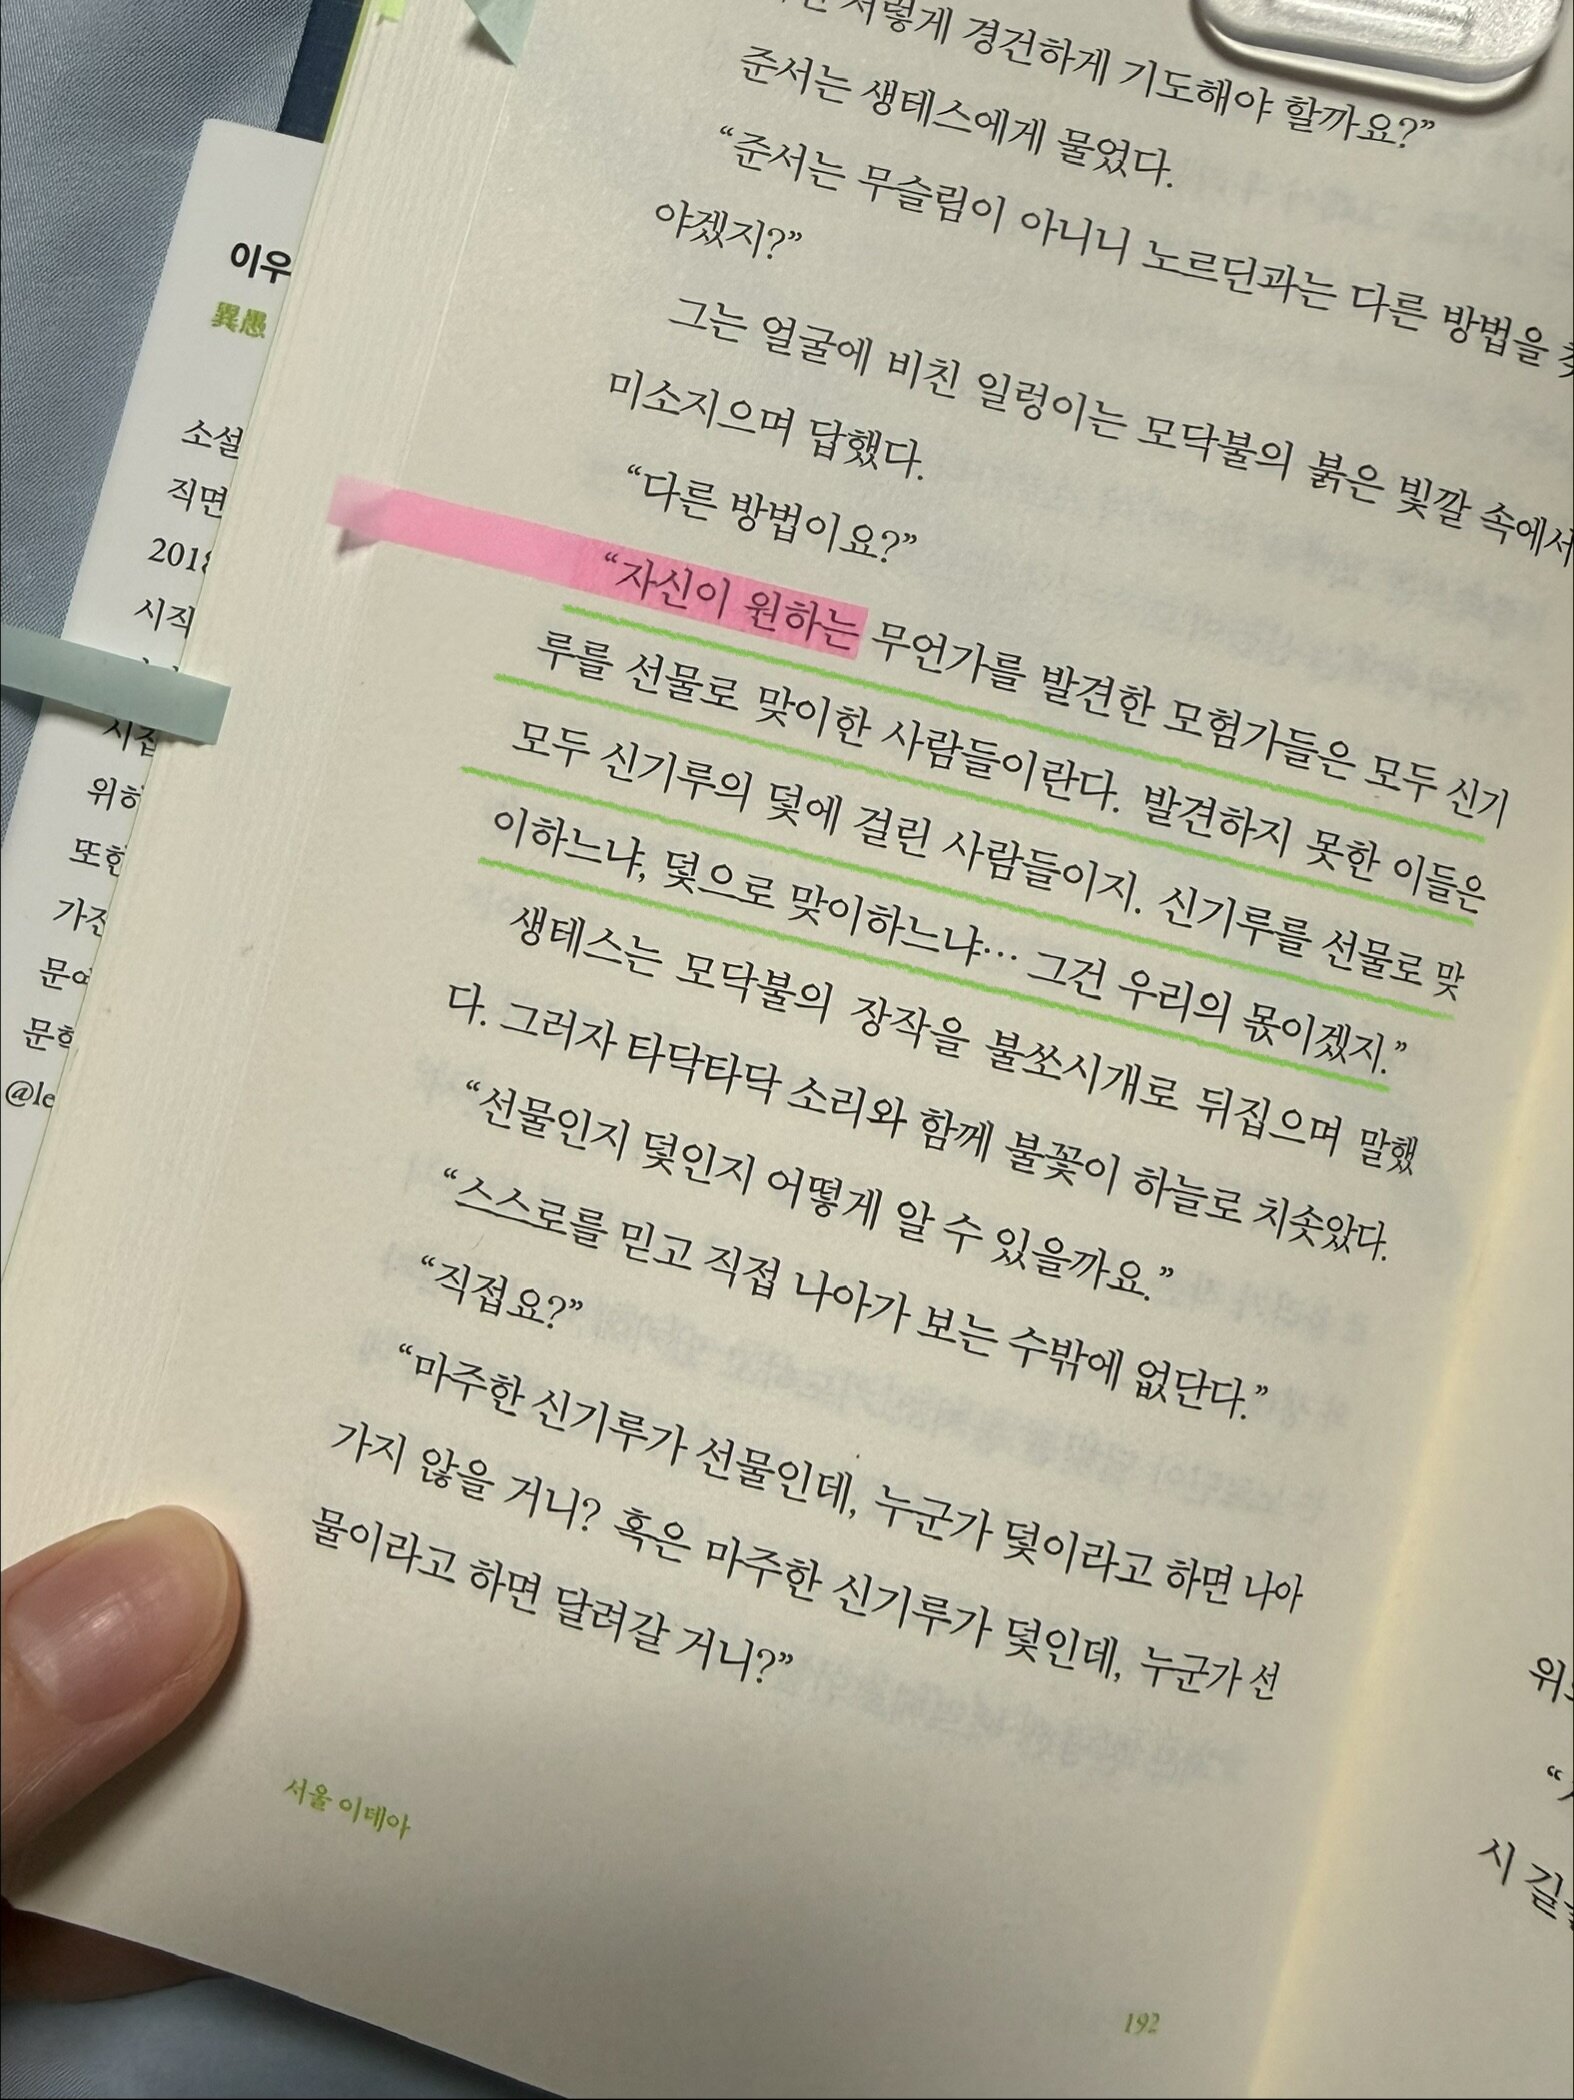 저렇게 경건하게 기도해야 할까요?”
준서는 생테스에게 물었다.
“준서는 무슬림이 아니니 노르딘과는 다른 방법을
야겠지?”
그는 얼굴에 비친 일렁이는 모닥불의 붉은 빛깔 속에서
미소지으며 답했다.
“다른 방법이요?”
“자신이 원하는 무언가를 발견한 모험가들은 모두 신기
루를 선물로 맞이한 사람들이란다. 발견하지 못한 이들은
모두 신기루의 덫에 걸린 사람들이지. 신기루를 선물로 맞
이하느냐, 덫으로 맞이하느냐… 그건 우리의 몫이겠지.”
생테스는 모닥불의 장작을 불쏘시개로 뒤집으며 말했
다. 그러자 타닥타닥 소리와 함께 불꽃이 하늘로 치솟았다.
“선물인지 덫인지 어떻게 알 수 있을까요.”
“스스로를 믿고 직접 나아가 보는 수밖에 없단다.”
“직접요?”
“마주한 신기루가 선물인데, 누군가 덫이라고 하면 나아
가지 않을 거니? 혹은 마주한 신기루가 덫인데, 누군가 선
물이라고 하면 달려갈 거니?”
서울 이데아
192
이우
異愚
소설
직면
2018
시작
시집
위하
또한
가진
문예
문학
@le
시 길